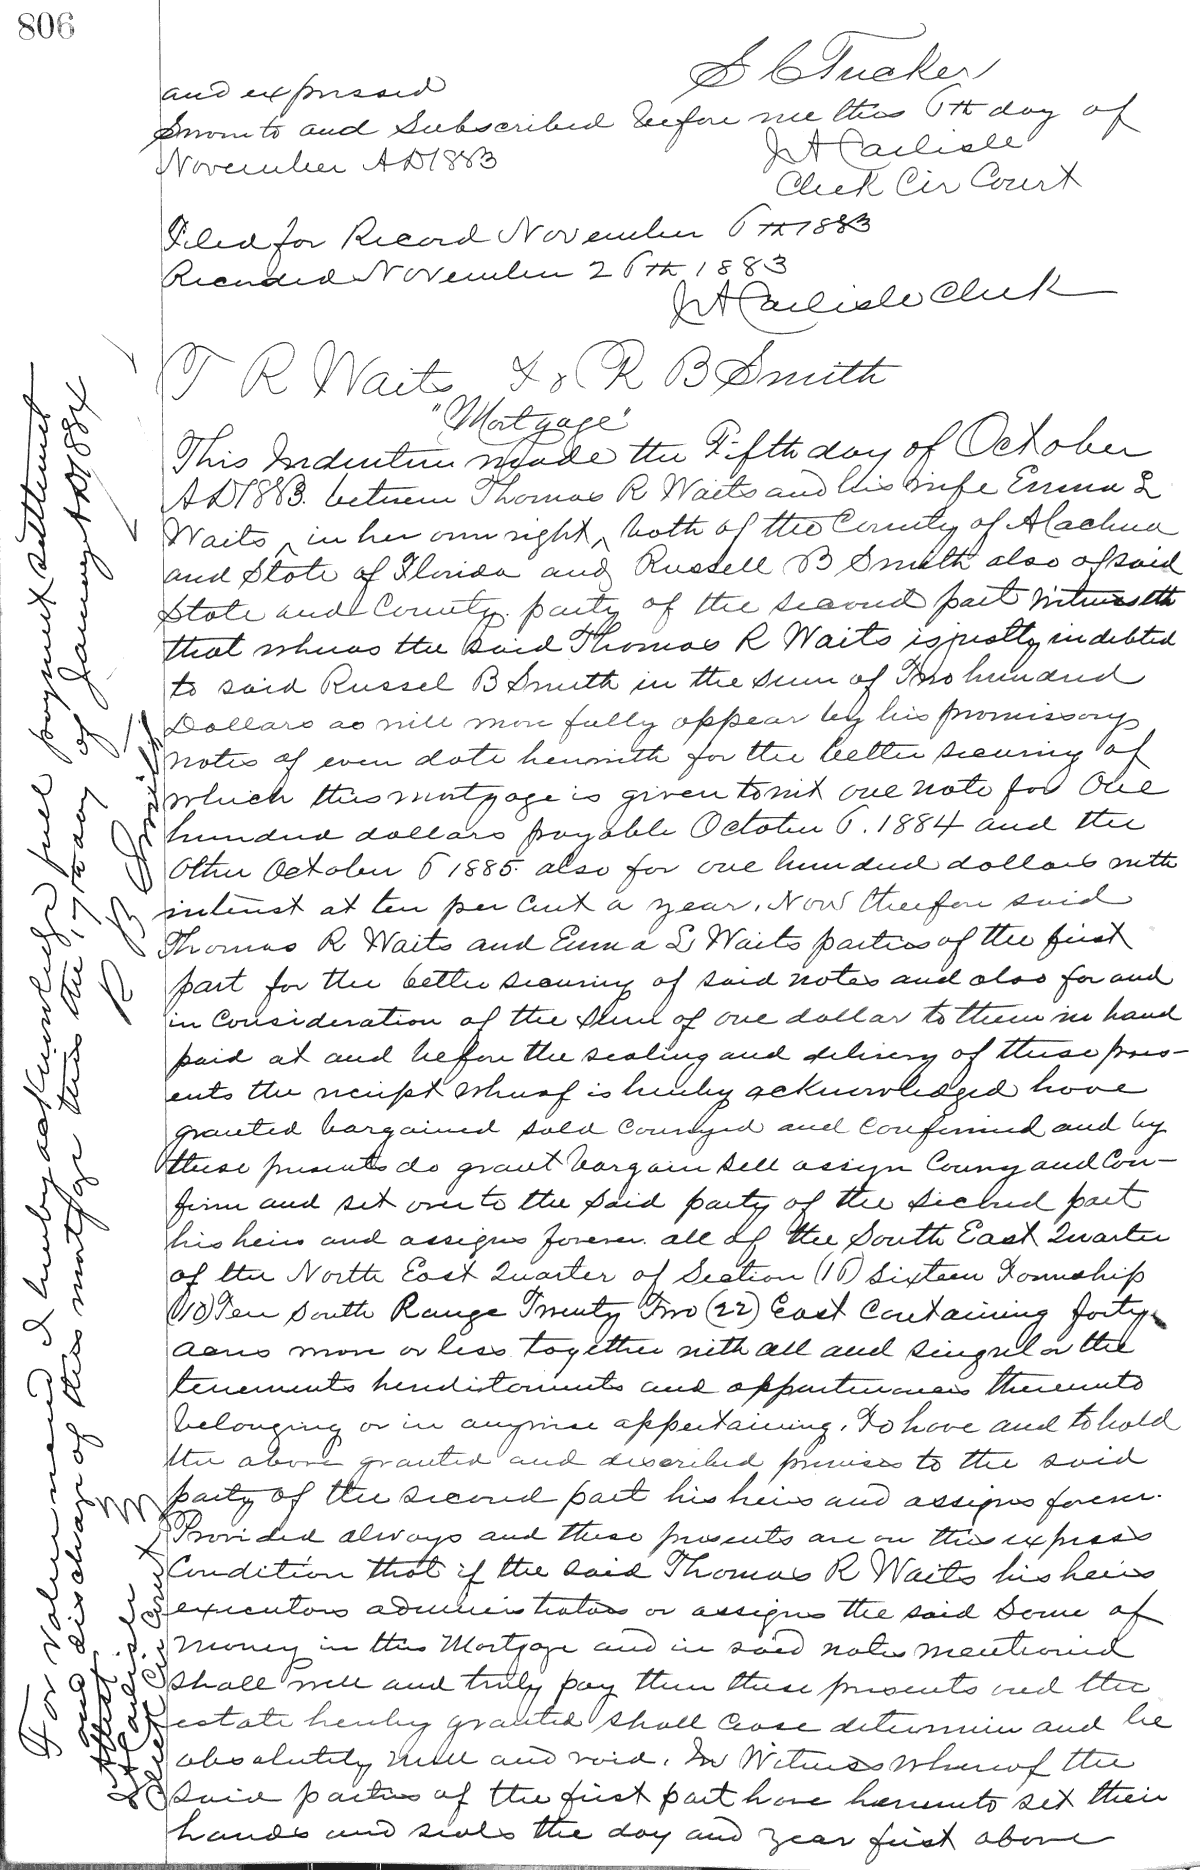 806
S C Tucker
and expressed
Sworn to and Subscribed before me this 6th day of
November AD 1883
J A Carlisle
Clerk Cir Court
Filed for Record November 6th 1883
Recorded November 26th 1883
J A Carlisle Clerk
T R Waits To R B Smith
"Mortgage"
This Indenture made the Fifth day of October
AD 1883. between Thomas R Waits and his wife Emma L
Waits ^ in her own right ^ both of the County of Alachua
and State of Florida and Russell B Smith also of said
State and County. party of the second part Witnesseth
that wheras the said Thomas R Waits is justly indebted
to said Russel B Smith in the Sum of Two hundred
Dollars as will more fully appear by his promissory
notes of even date herewith for the better securing of
which this mortgage is given towit one note for One
hundred dollars payable October 6. 1884 and the
other October 6 1885. also for one hundred dollars with
interest at ten per cent a year. Now therefore said
Thomas R Waits and Emma L Waits parties of the first
part for the better securing of said notes and also for and
in consideration of the Sum of one dollar to them in hand
paid at and before the sealing and delivery of these pres-
ents the reciept wherof is hereby acknowledged have
granted bargained sold conveyed and confirmed and by
these presents do grant bargain sell assign convey and con-
firm and set over to the Said party of the Second part
his heirs and assigns forever. all of the South East Quarter
of the North East Quarter of Section (16) Sixteen Township
(10) Ten South Range Twenty Two (22) East containing forty
acres more or less together with all and singular the
tenements heriditaments and appurtenances thereunto
belonging or in anywise appertaining. To have and to hold
the above granted and described premises to the said
party of the second part his heirs and assigns forever.
Provided always and these presents are on this express
Condition that if the said Thomas R Waits his heirs
executors administrators or assigns the said Some of
money in this Mortgage and in said notes mentioned
shall well and truly pay then these presents and the
estate hereby granted shall cease determine and be
absolutely null and void. In Witness whereof the
said parties of the first part have hereunto set their
hands and seals the day and year first above
For value received I hereby acknowledge full payment settlement
and discharge of this mortgage this the 17th day of January AD 1884
R B Smith
Attest
J A Carlisle
Clerk Cir Court